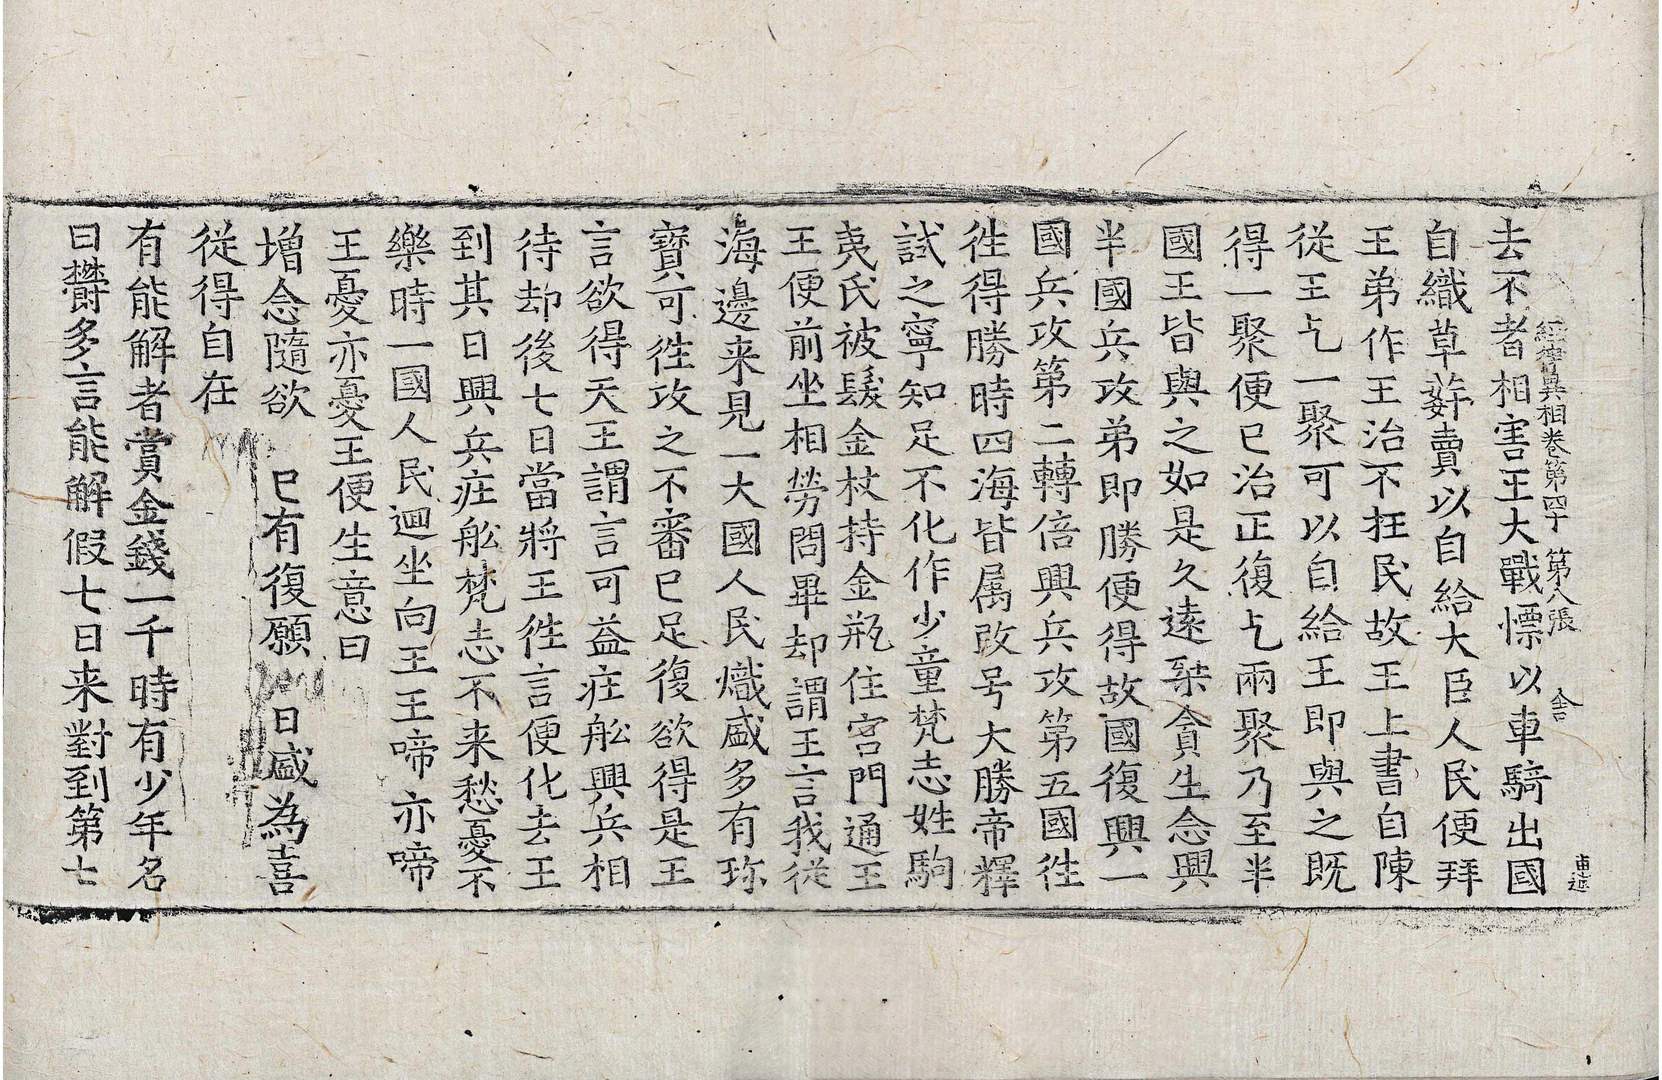 經律異相卷第四十 第八張 舍
去不者相害王大戰慄以車騎出國
自織草䓑賣以自給大臣人民便拜
王弟作王治不抂民故王上書自陳
從王乞一聚可以自給王即與之既
得一聚便已治正復乞兩聚乃至半
國王皆與之如是久遠桒貪生念興
半國兵攻弟即勝便得故國復興一
國兵攻第二轉倍興兵攻第五國徃
徃得勝時四海皆属改号大勝帝釋
試之寧知足不化作少童梵志姓駒
夷氏被髮金杖持金瓶住宮門通王
王便前坐相勞問畢却謂王言我從
海邊来見一大國人民熾盛多有珎
寶可徃攻之不審已足復欲得是王
言欲得天王謂言可益疘舩興兵相
待却後七日當將王徃言便化去王
到其日興兵疘舩梵志不来愁憂不
樂時一國人民迴坐向王王啼亦啼
王憂亦憂王便生意曰
增念隨欲 已有復願 日盛為喜
從得自在
有能解者賞金錢一千時有少年名
曰欝多言能解假七日来對到第七